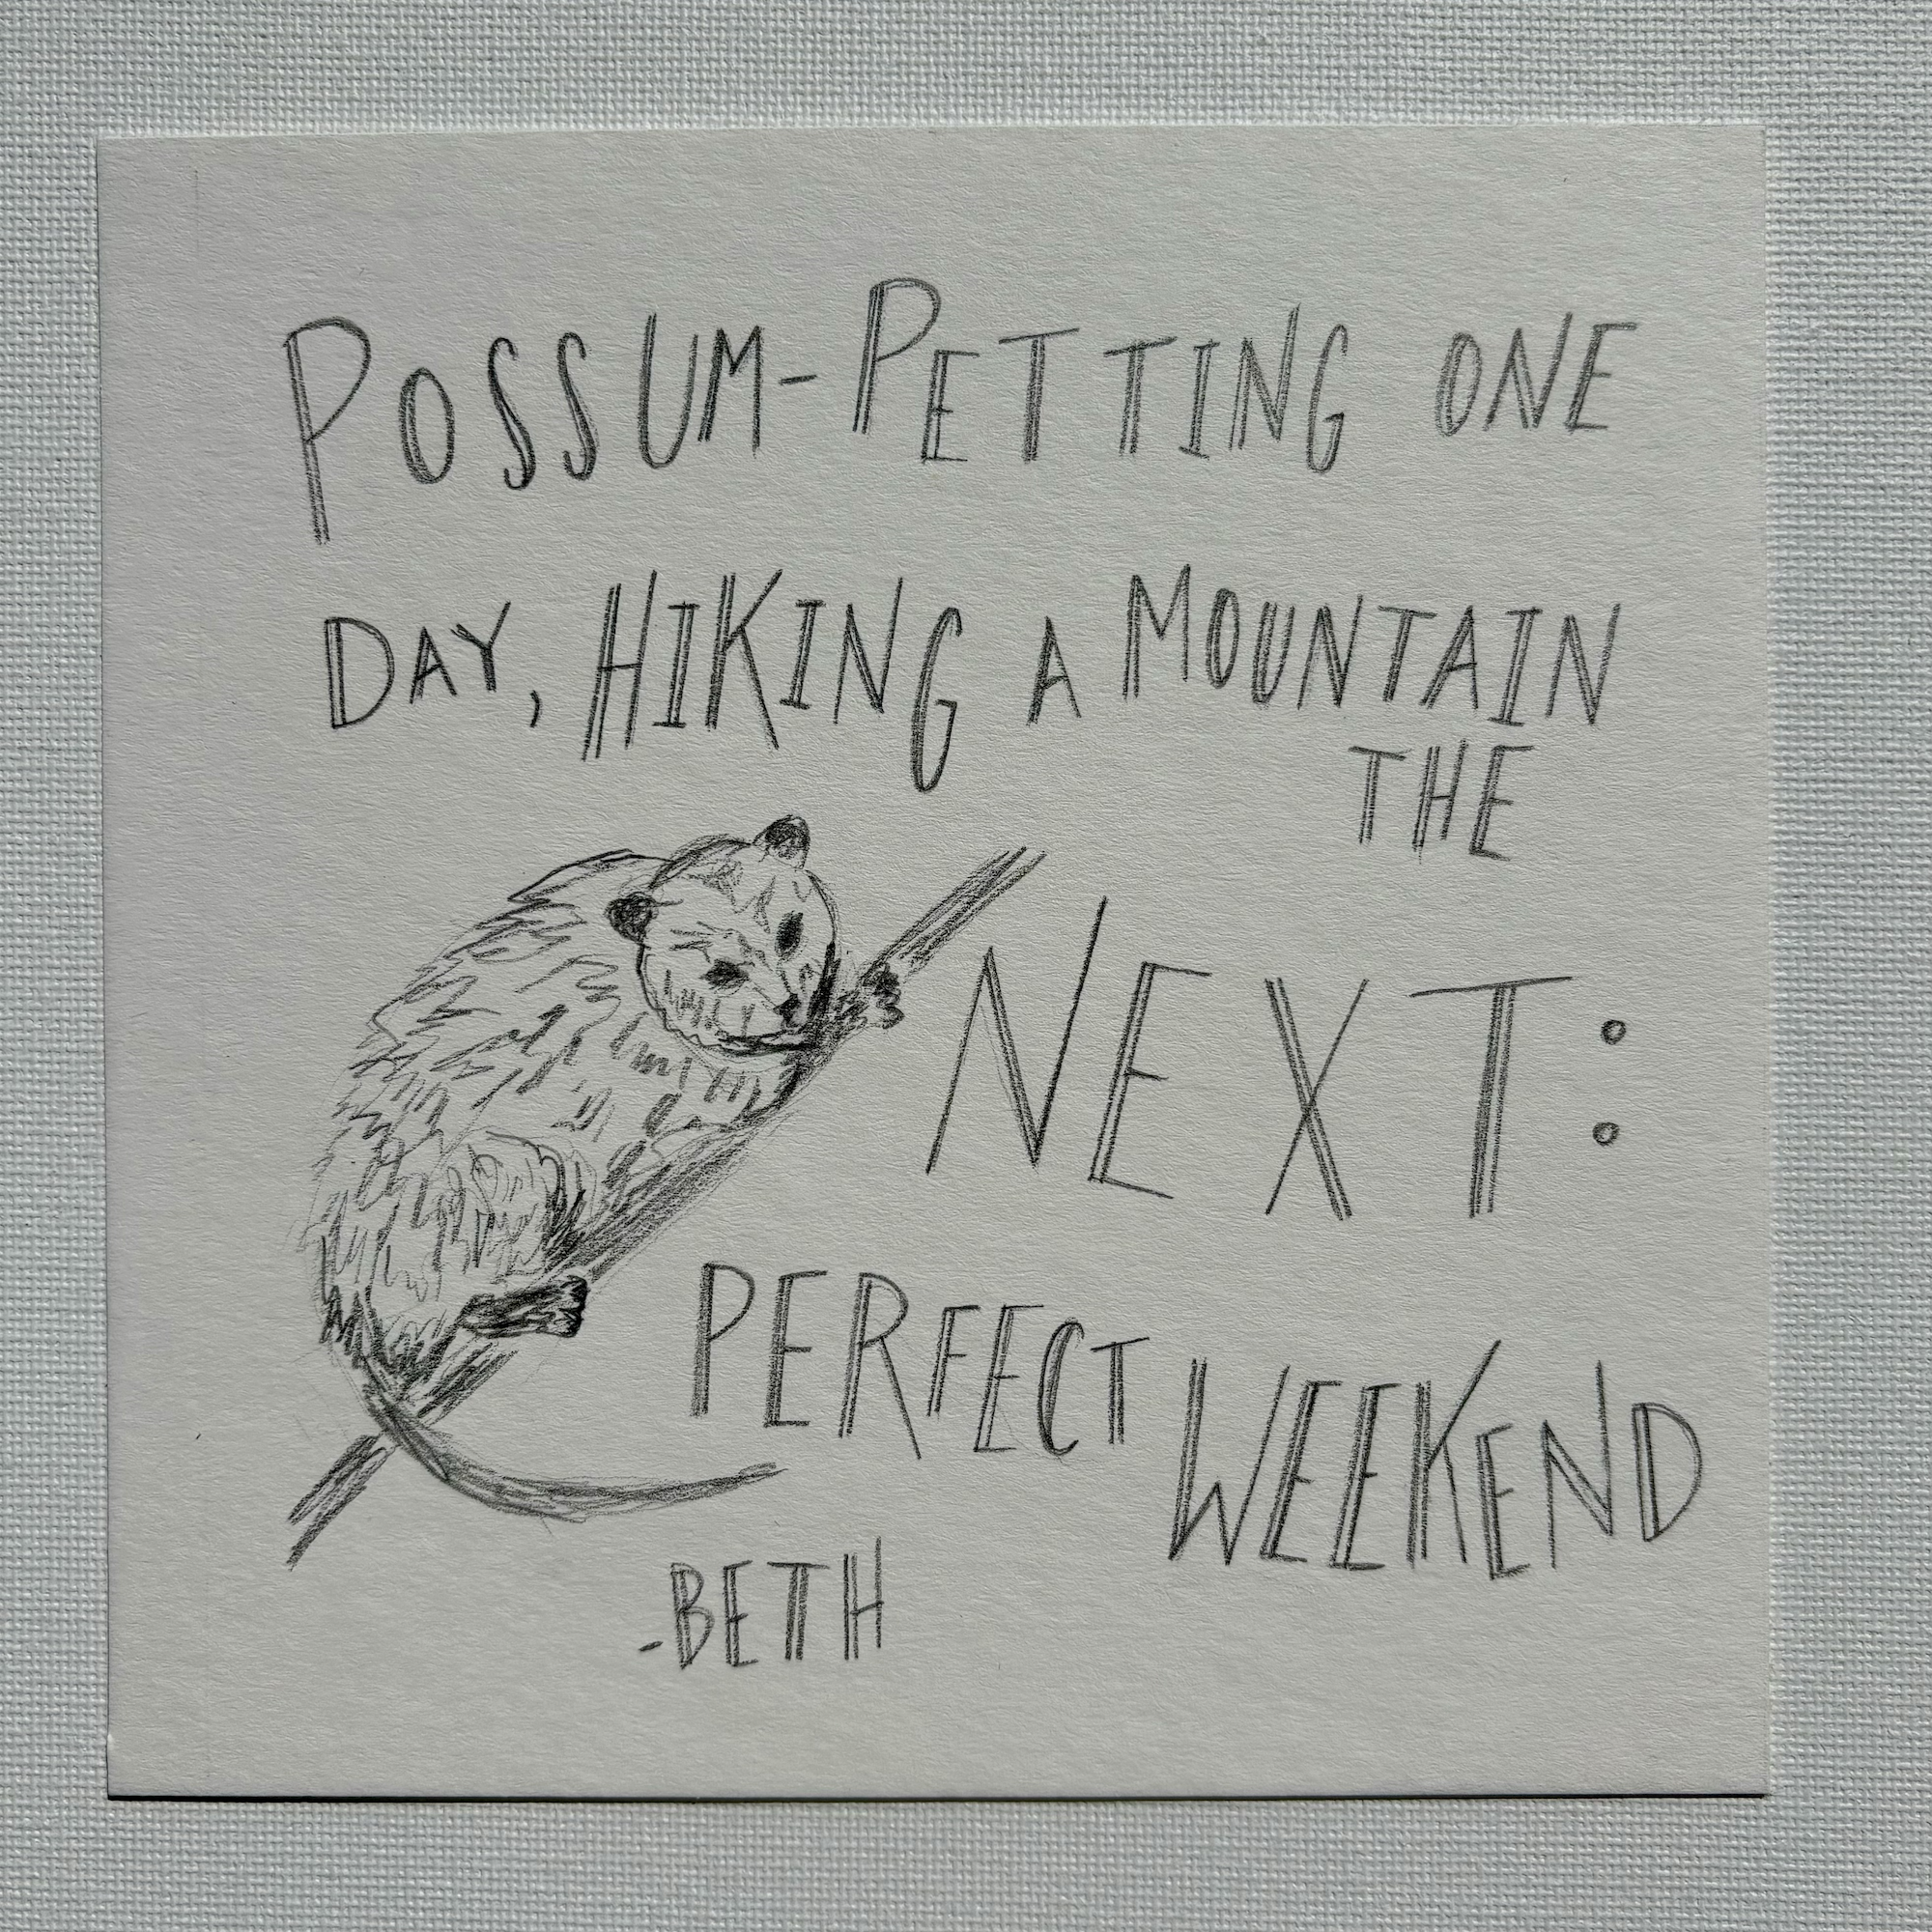 POSSUM-PETTING ONE
DAY, HIKING A MOUNTAIN
THE
NEXT:
PERFECT WEEKEND
-BETH